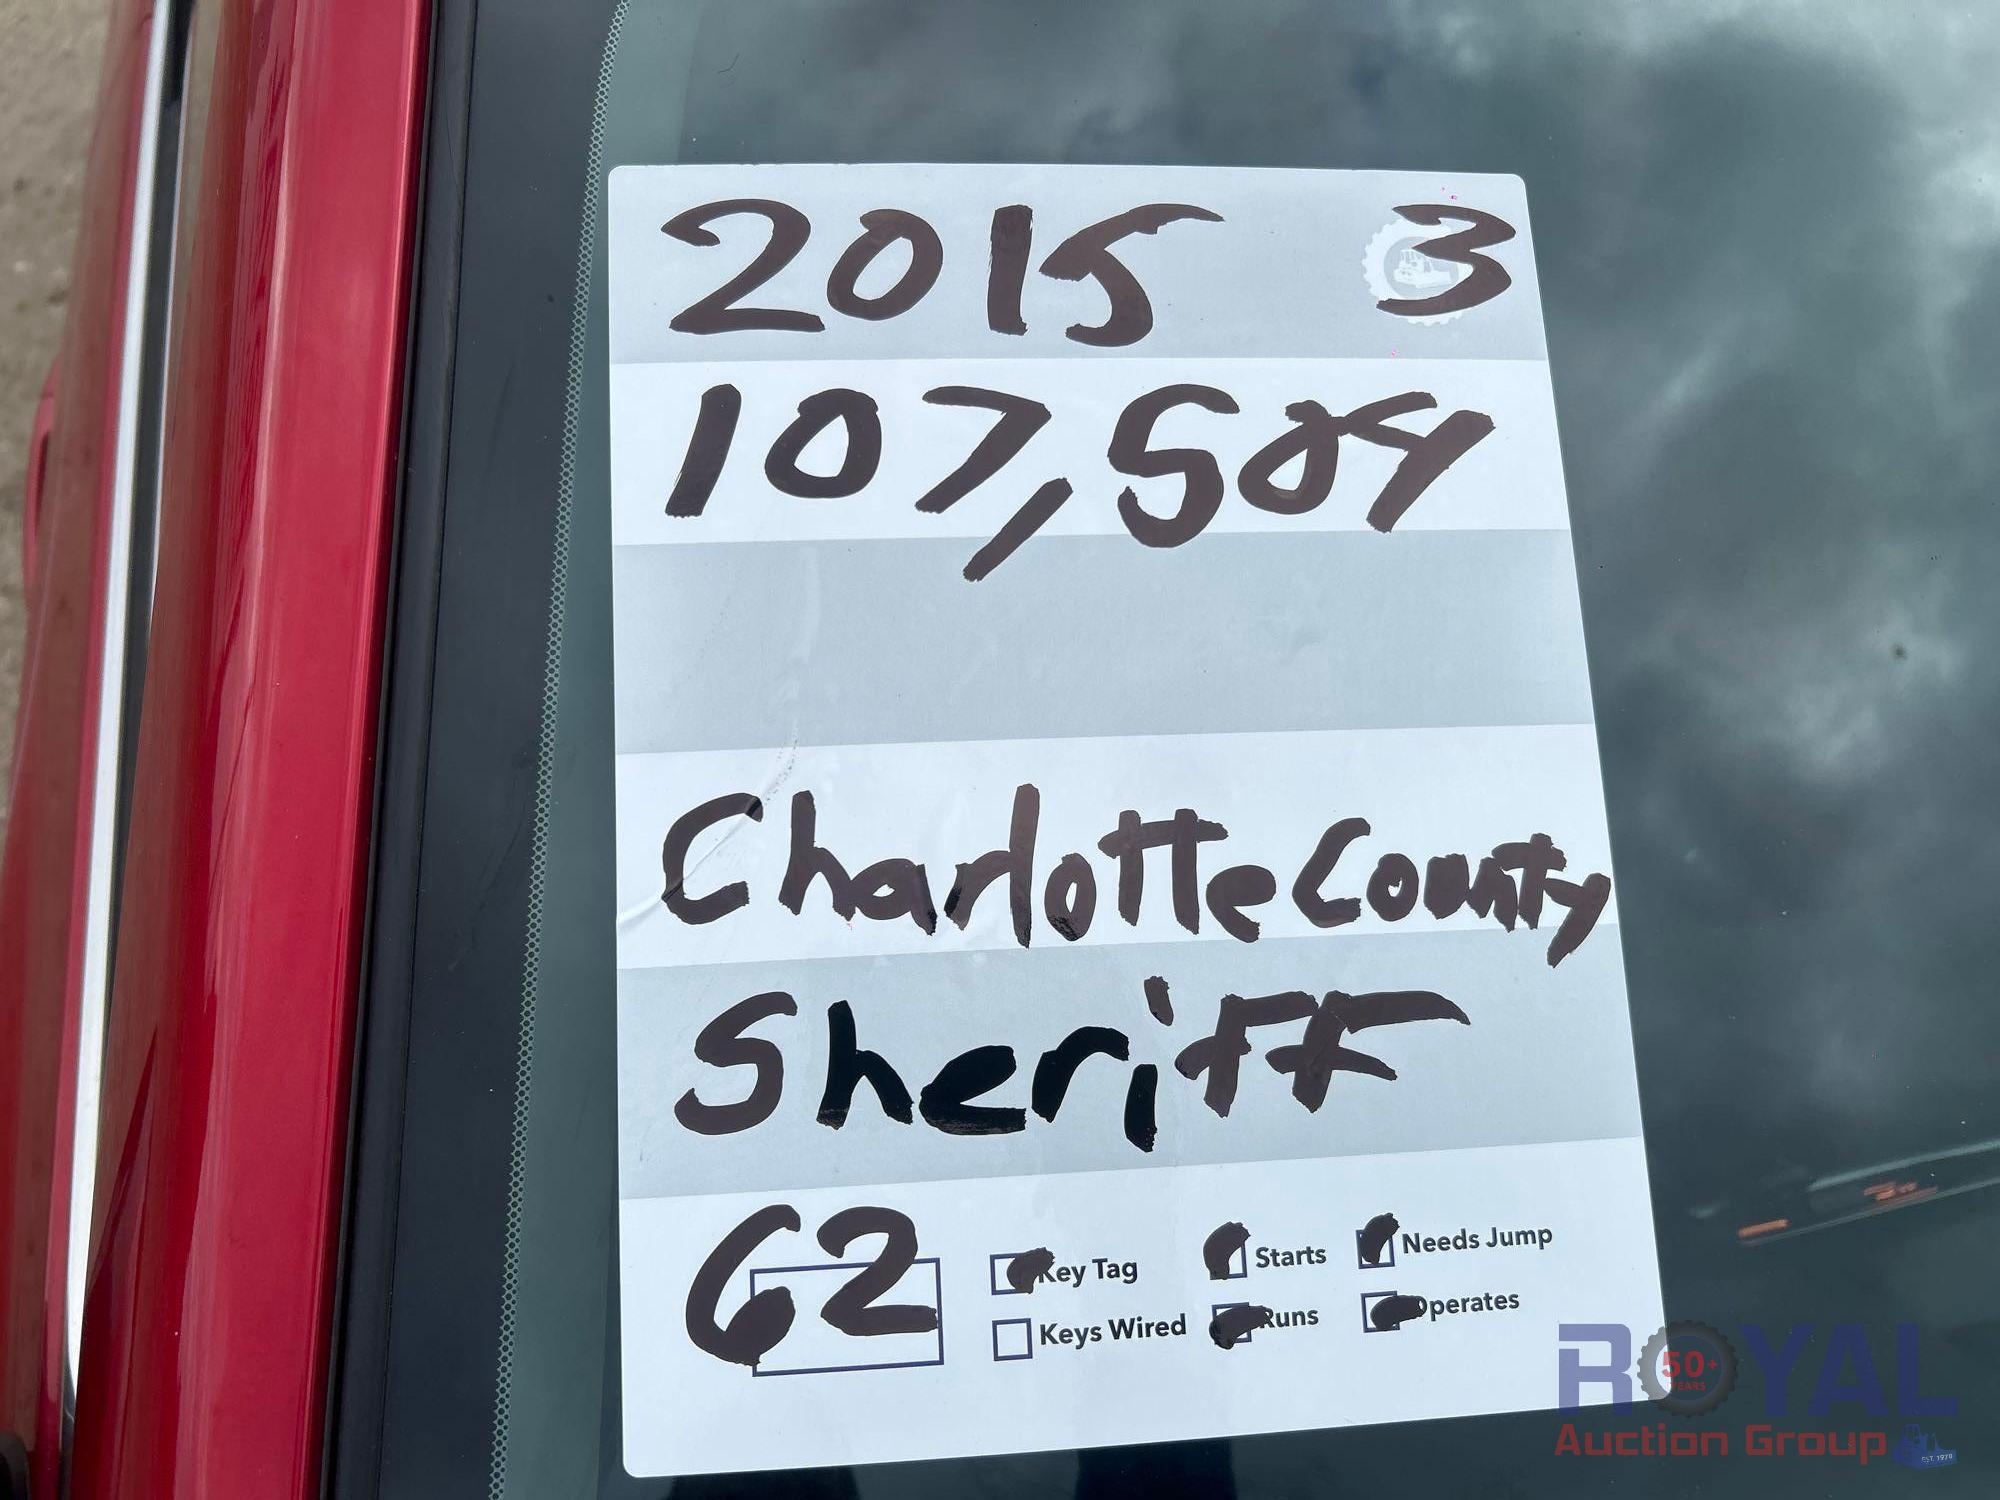 2015 3
107,584
Charlotte County
Sheriff
62
Key Tag
Starts
Needs Jump
Keys Wired
Runs
Operates
ROYAL
50+
YEARS
Auction Group
EST. 1970